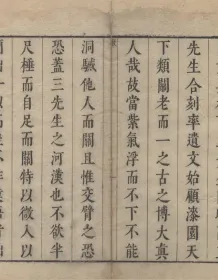 先生合刻率遺文始顧漆園天
下類關老而一之古之博大真
人哉故當紫氣浮而不下不能
洞駴他人而關且惟交臂之恐
恐蓋三先生之河漢也不欲半
尺極而自足而關特以微人以